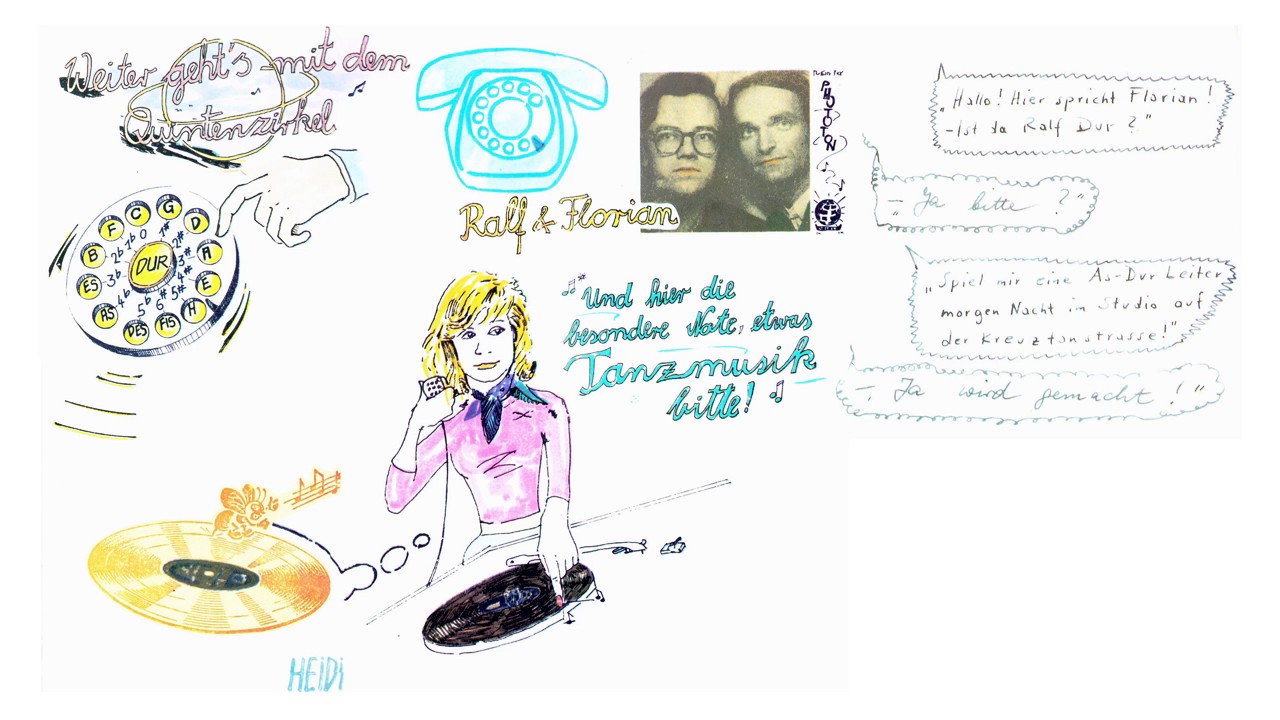 Weiter geht's mit dem
Quintenzirkel
C
G
D
A
E
H
FIS
DES
AS
ES
B
F
DUR
0
1#
2#
3#
4#
5#
6#
5b
4b
3b
2b
1b
Ralf & Florian
"Und hier die
besondere Note, etwas
Tanzmusik
bitte!
„Hallo! Hier spricht Florian!
-Ist da Ralf Dur?"
„- Ja bitte ?"
„Spiel mir eine As-Dur Leiter
morgen Nacht im Studio auf
der Kreuztonstrasse!"
-„ Ja wird gemacht !"
HEiDi